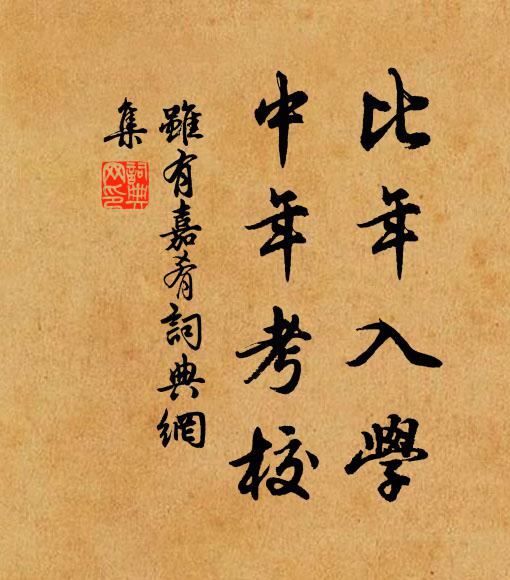 比年入學
中年考校
雖有嘉肴詞典網
集
詞典網印